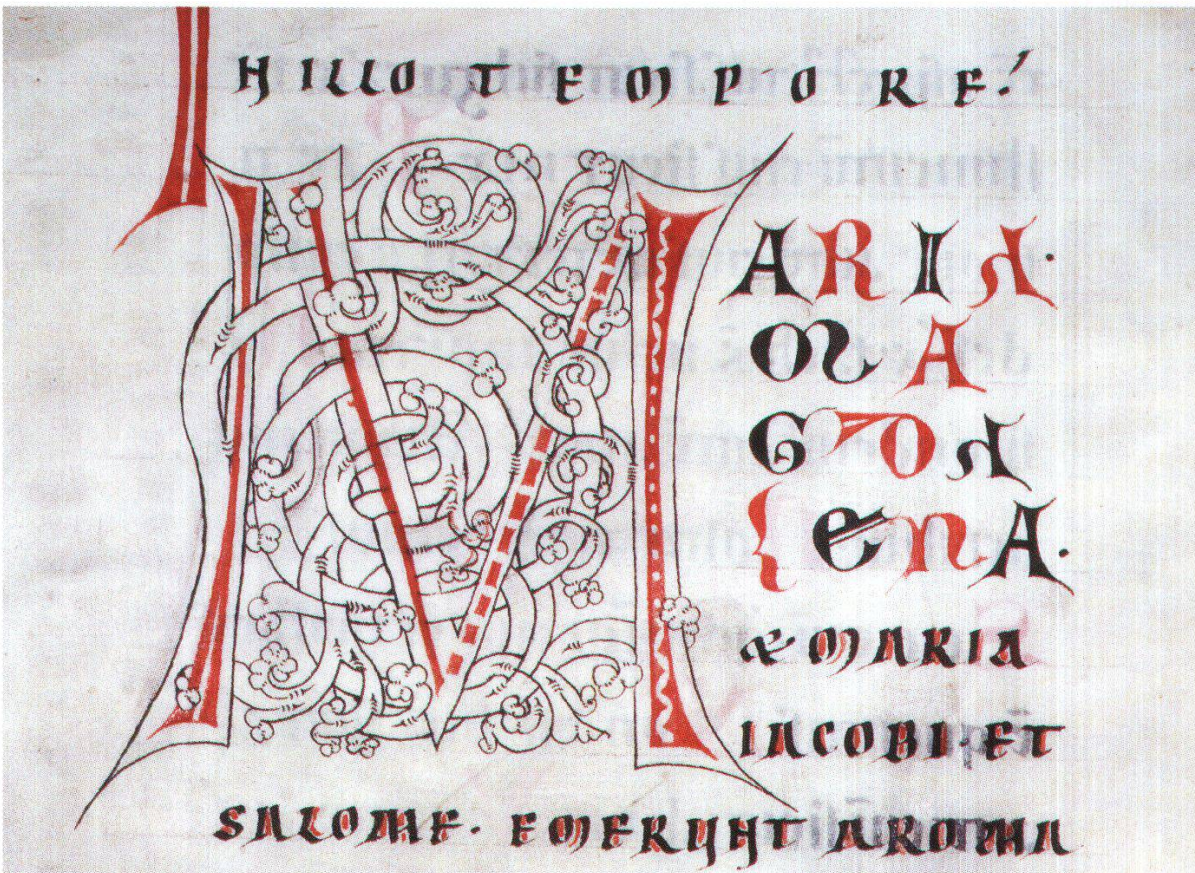 IN ILLO TEMPORE.
MARIA.
MA
GDA
LENA.
& MARIA
IACOBI. ET
SALOME. EMERUNT AROMA